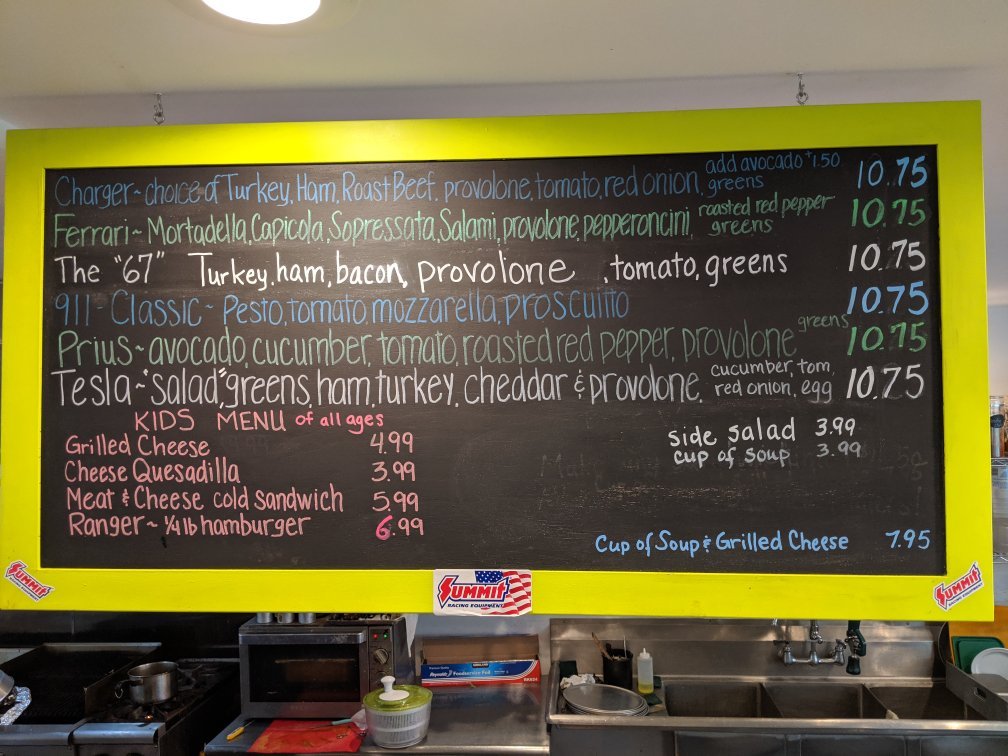 Charger~ choice of Turkey, Ham, Roast Beef, provolone, tomato, red onion, add avocado +1.50 greens 10.75
Ferrari~ Mortadella, Capicola, Sopressata, Salami, provolone, pepperoncini, roasted red pepper greens 10.75
The "67" Turkey, ham, bacon, provolone, tomato, greens 10.75
911- Classic~ Pesto, tomato, mozzarella, proscuitto 10.75
Prius~ avocado, cucumber, tomato, roasted red pepper, provolone greens 10.75
Tesla~ "salad", greens, ham, turkey, cheddar & provolone, cucumber, tom, red onion, egg 10.75
KIDS MENU of all ages
Grilled Cheese 4.99
Cheese Quesadilla 3.99
Meat & Cheese cold sandwich 5.99
Ranger~ 1/4 lb hamburger 6.99
side salad 3.99
cup of soup 3.99
Cup of Soup & Grilled Cheese 7.95
SUMMIT
SUMMIT
RACING EQUIPMENT
SUMMIT
Reynolds Foodservice Foil